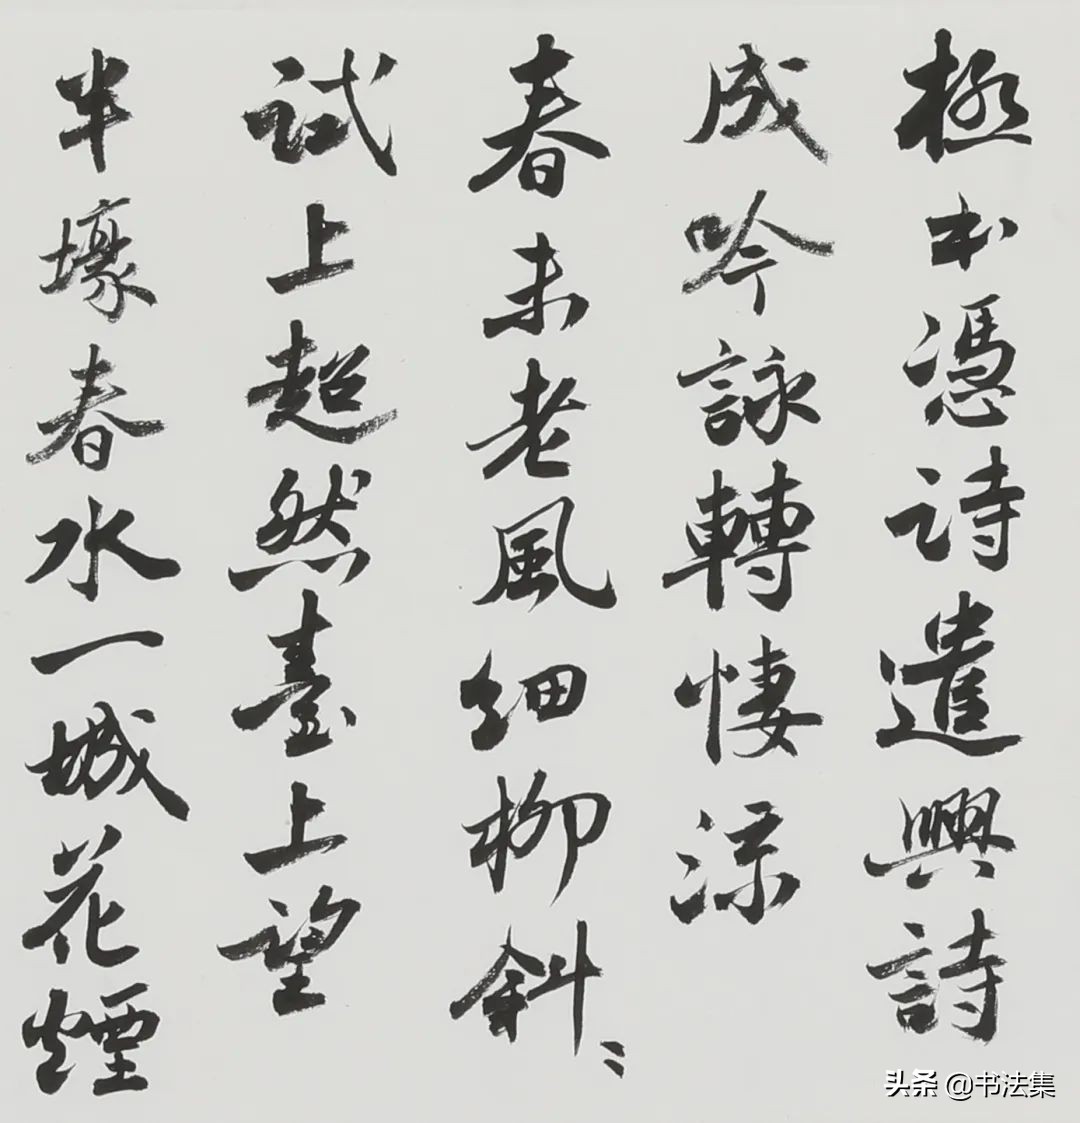 極本憑詩遣興詩
成吟詠轉悽涼
春未老風細柳斜〻
試上超然臺上望
半壕春水一城花煙
头条 @书法集